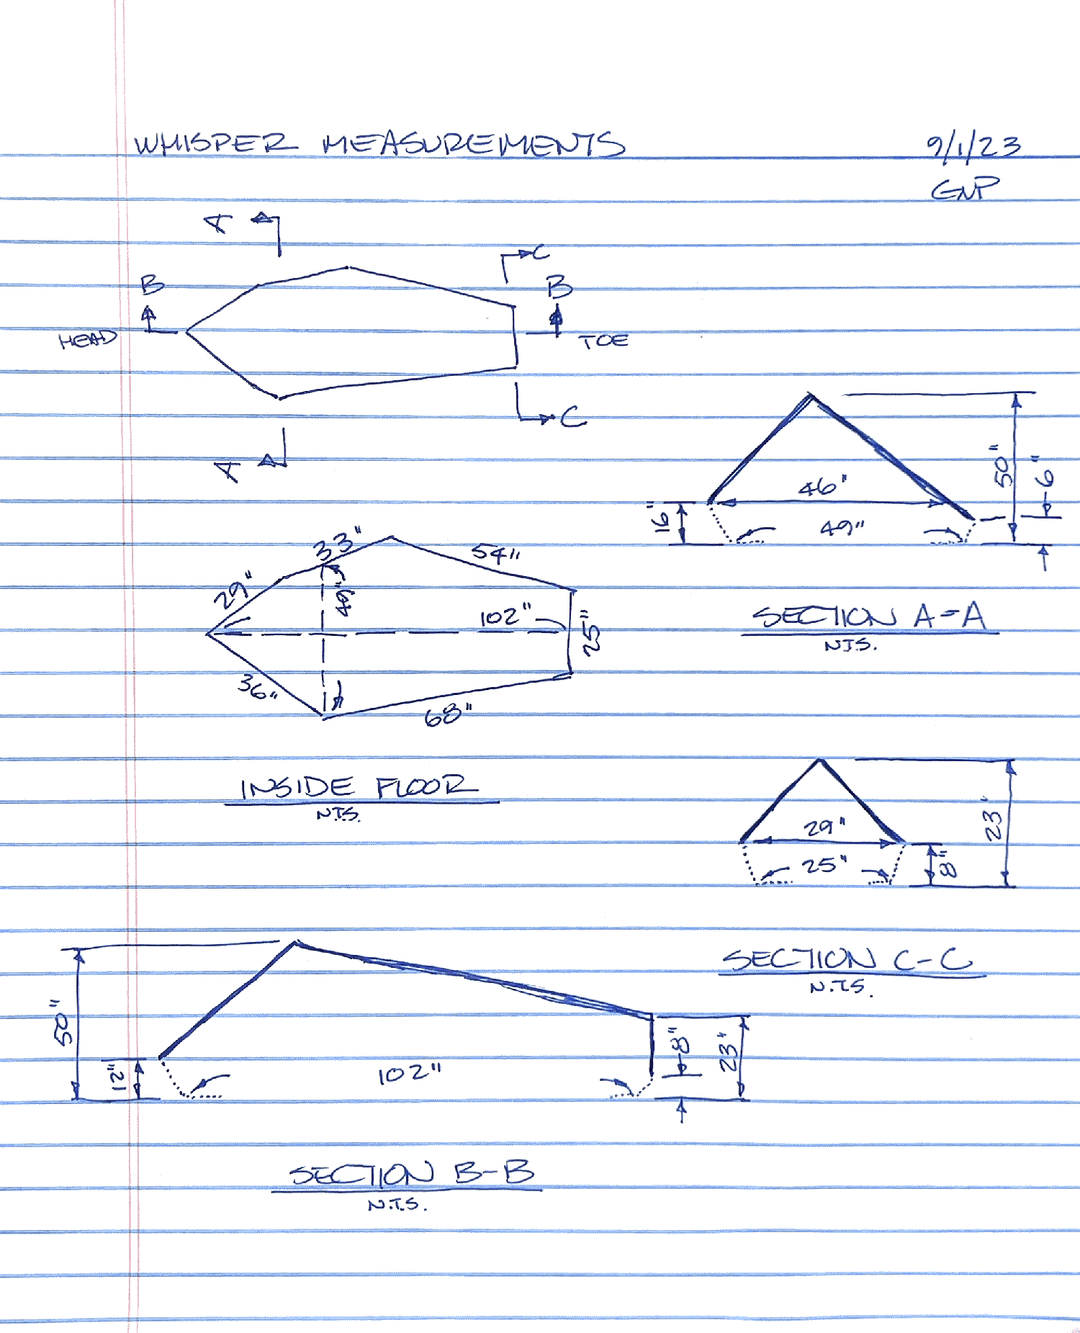 WHISPER MEASUREMENTS 9/1/23
GNP
A
C
B B
HEAD TOE
C
A
50"
6"
46"
16"
49"
33"
54"
29"
49"
102"
25"
36"
68"
SECTION A-A
N.T.S.
INSIDE FLOOR
N.T.S.
23"
29"
25"
8"
SECTION C-C
N.T.S.
50"
12"
102"
8"
23"
SECTION B-B
N.T.S.